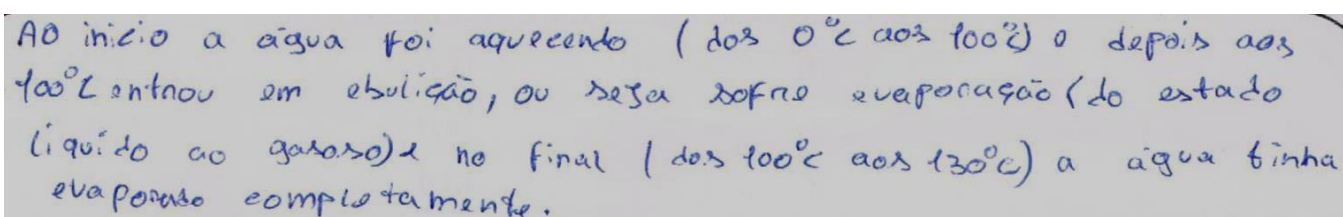 Ao início a água foi aquecendo (dos 0°C aos 100°C) e depois aos
100°C entrou em ebulição, ou seja sofre evaporação (do estado
líquido ao gasoso) e no final (dos 100°C aos 130°C) a água tinha
evaporado completamente.